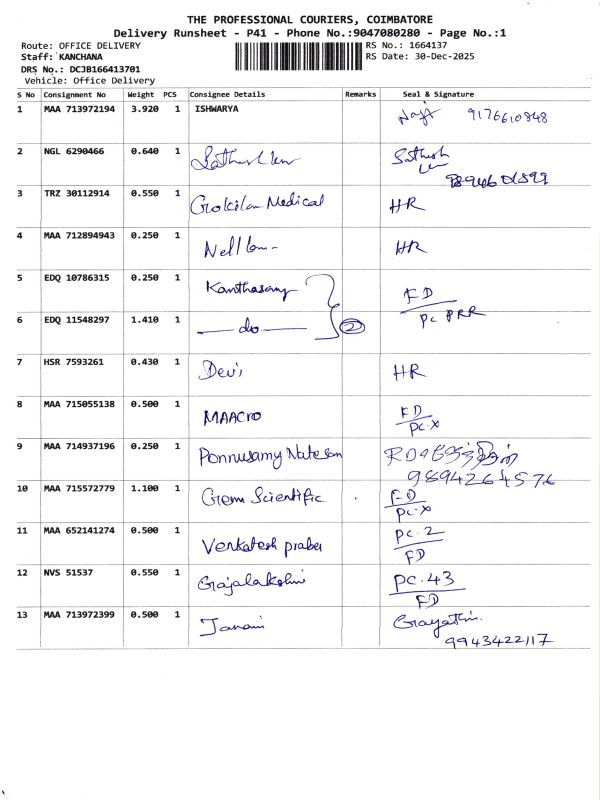 THE PROFESSIONAL COURIERS, COIMBATORE
Delivery Runsheet - P41 - Phone No.:9047080280 - Page No.:1
Route: OFFICE DELIVERY
RS No.: 1664137
Staff: KANCHANA
RS Date: 30-Dec-2025
DRS No.: DCJB166413701
Vehicle: Office Delivery
S No Consignment No Weight PCS Consignee Details Remarks Seal & Signature
1 MAA 713972194 3.920 1 ISHWARYA 9176610848
2 NGL 6290466 0.640 1 Sathish
3 TRZ 30112914 0.550 1 Gokilam Medical HR
4 MAA 712894943 0.250 1 HR
5 EDQ 10786315 0.250 1 Kanthasamy FD
6 EDQ 11548297 1.410 1 — do — 2 PC PRR
7 HSR 7593261 0.430 1 Devi HR
8 MAA 715055138 0.500 1 MAACRO FD
PC-X
9 MAA 714937196 0.250 1 Ponnusamy Natesan
9894264576
10 MAA 715572779 1.100 1 Gem Scientific FD
PC-X
11 MAA 652141274 0.500 1 Venkatesh prabu PC-2
FD
12 NVS 51537 0.550 1 Gajalakshmi PC-43
FD
13 MAA 713972399 0.500 1 Janani Gayathri
9943422117